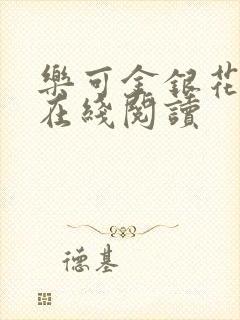 樂可金銀花
在綫閱讀
德基